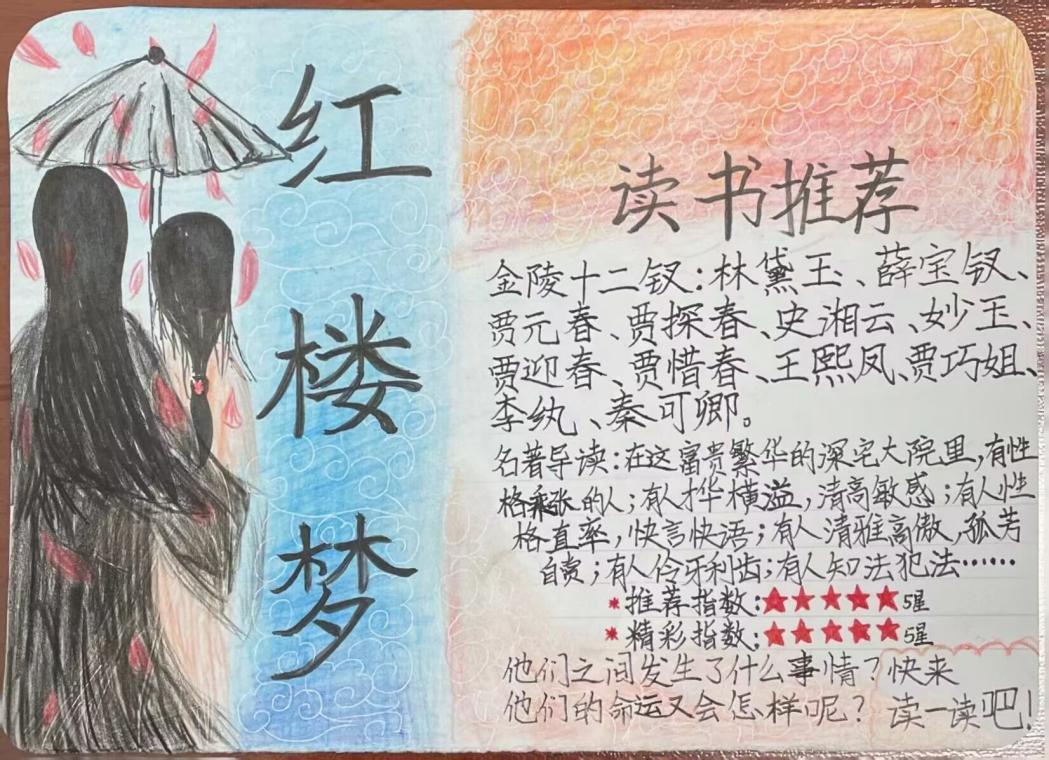 红楼梦
读书推荐
金陵十二钗:林黛玉、薛宝钗、
贾元春、贾探春、史湘云、妙玉、
贾迎春、贾惜春、王熙凤、贾巧姐、
李纨、秦可卿。
名著导读:在这富贵繁华的深宅大院里,有性
格乖张的人;有人才华横溢,清高敏感;有人性
格直率,快言快语;有人清雅高傲,孤芳
自赏;有人伶牙利齿;有人知法犯法……
*推荐指数:★★★★★5星
*精彩指数:★★★★★5星
他们之间发生了什么事情?快来
他们的命运又会怎样呢?读一读吧!